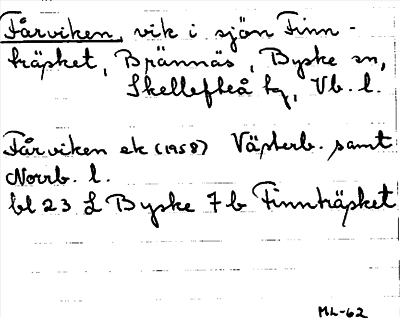 Fårviken, vik i sjön Finn-
träsket, Brännäs, Byske sn,
Skellefteå kg, Vb. l.
Fårviken ek (1958) Västerb. samt
Norrb. l.
bl 23 L Byske 7 b Finnträsket
ML-62